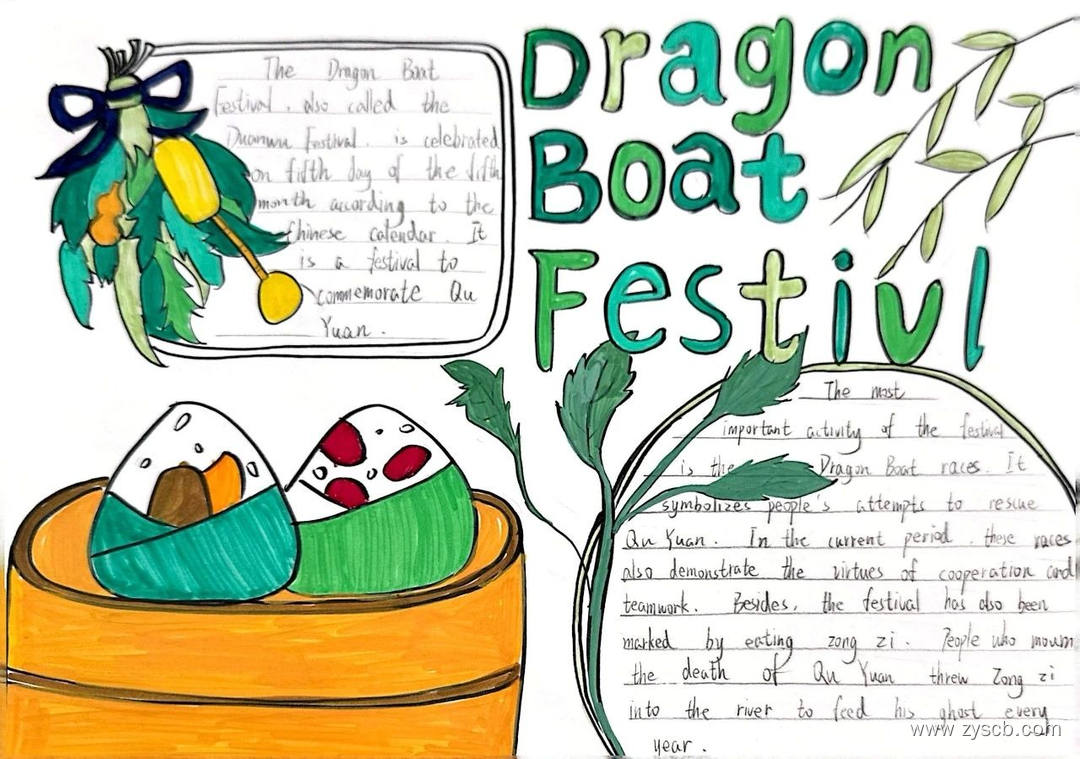 Dragon
Boat
Festivl
The Dragon Boat
Festival, also called the
Duanwu Festival, is celebrated
on fifth day of the fifth
month according to the
Chinese calendar. It
is a festival to
commemorate Qu
Yuan.
The most
important activity of the festival
is the Dragon Boat races. It
symbolizes people's attempts to rescue
Qu Yuan. In the current period, these races
also demonstrate the virtues of cooperation and
teamwork. Besides, the festival has also been
marked by eating zong zi. People who mourn
the death of Qu Yuan threw Zong zi
into the river to feed his ghost every
year.
www.zyscb.com